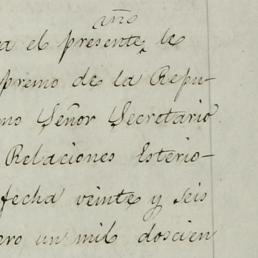 año
a el presente^ le
premo de la Repu-
mo Señor Secretario
Relaciones Esterio-
fecha veinte y seis
ero un mil doscien